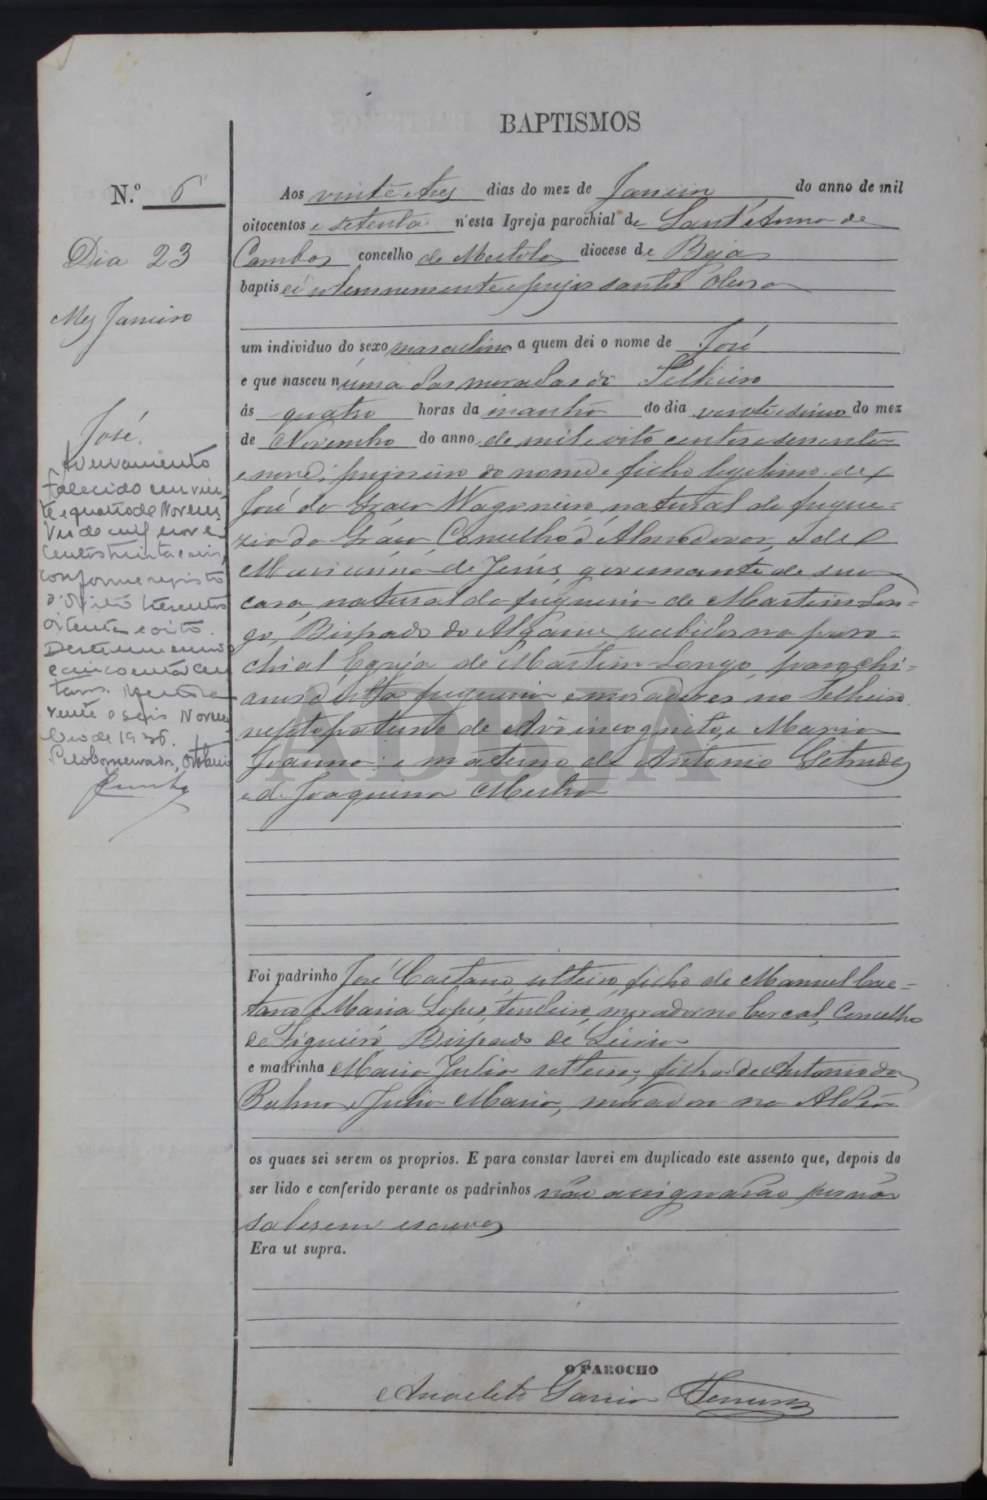 BAPTISMOS
N.º 6
Dia 23
Mez Janeiro
José.
Averbamento
Falecido em vin-
te e quatro de Novem-
bro de mil nove-
centos trinta e seis,
conforme registo
oitenta e oito.
vinte e seis Novem-
bro de 1936.
Aos vinte e tres dias do mez de Janeiro do anno de mil
oitocentos e setenta n'esta Igreja parochial de Sant'Anna de
Cambas concelho de Mertola diocese de Beja
baptisei solemnemente e puz os santos oleos
um individuo do sexo masculino a quem dei o nome de José
e que nasceu n'uma das moradas do Telheiro
ás quatro horas da manhã do dia vinte e cinco do mez
de Novembro do anno de mil e oito centos e sessenta
e nove; primeiro do nome e filho legitimo de
José da Graça natural da fregue-
zia da Graça Concelho d'Almodovar, e de
Marianna de Jesus, governante de sua
casa, natural da freguezia de Martim Lon-
go, Bispado do Algarve, recebidos na paro-
chial Egreja de Martim Longo, parochi-
anos d'esta freguezia e moradores no Telheiro
neto paterno de Avô incognito, e Maria
Joanna: e materno de Antonio
e de Joaquina Mestra
Foi padrinho José Caetano, solteiro, filho de Manuel Cae-
tano e Maria Lopes, tendeiro, morador no Cercal, Concelho
de Bispado de Leiria
e madrinha Maria Julia solteira, filha de Antonio da
Palma e Julia Maria, moradora na Aldêa
os quaes sei serem os proprios. E para constar lavrei em duplicado este assento que, depois de
ser lido e conferido perante os padrinhos não assignárão por não
saberem escrever
Era ut supra.
O PAROCHO
Anacleto Garcia
ADBJA